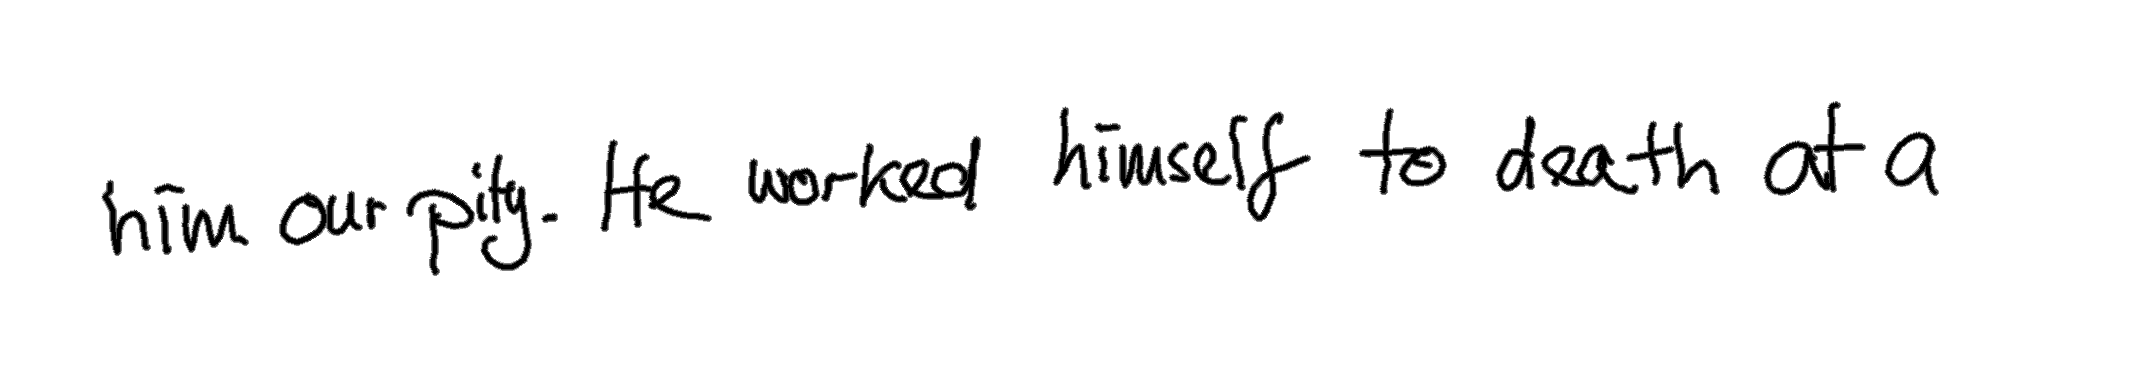 him our pity. He worked himself to death at a